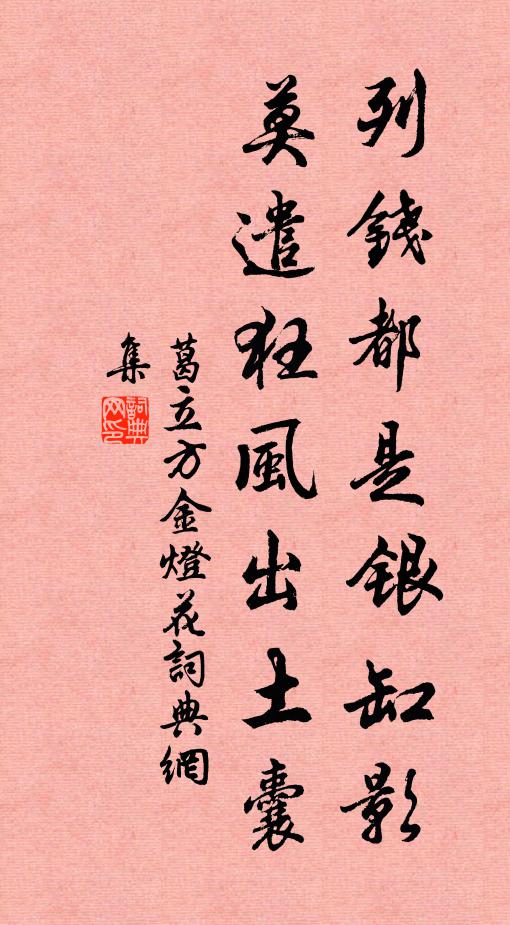 列錢都是銀缸影
莫遣狂風出土囊
葛立方金燈花詞典網
集
詞典網印